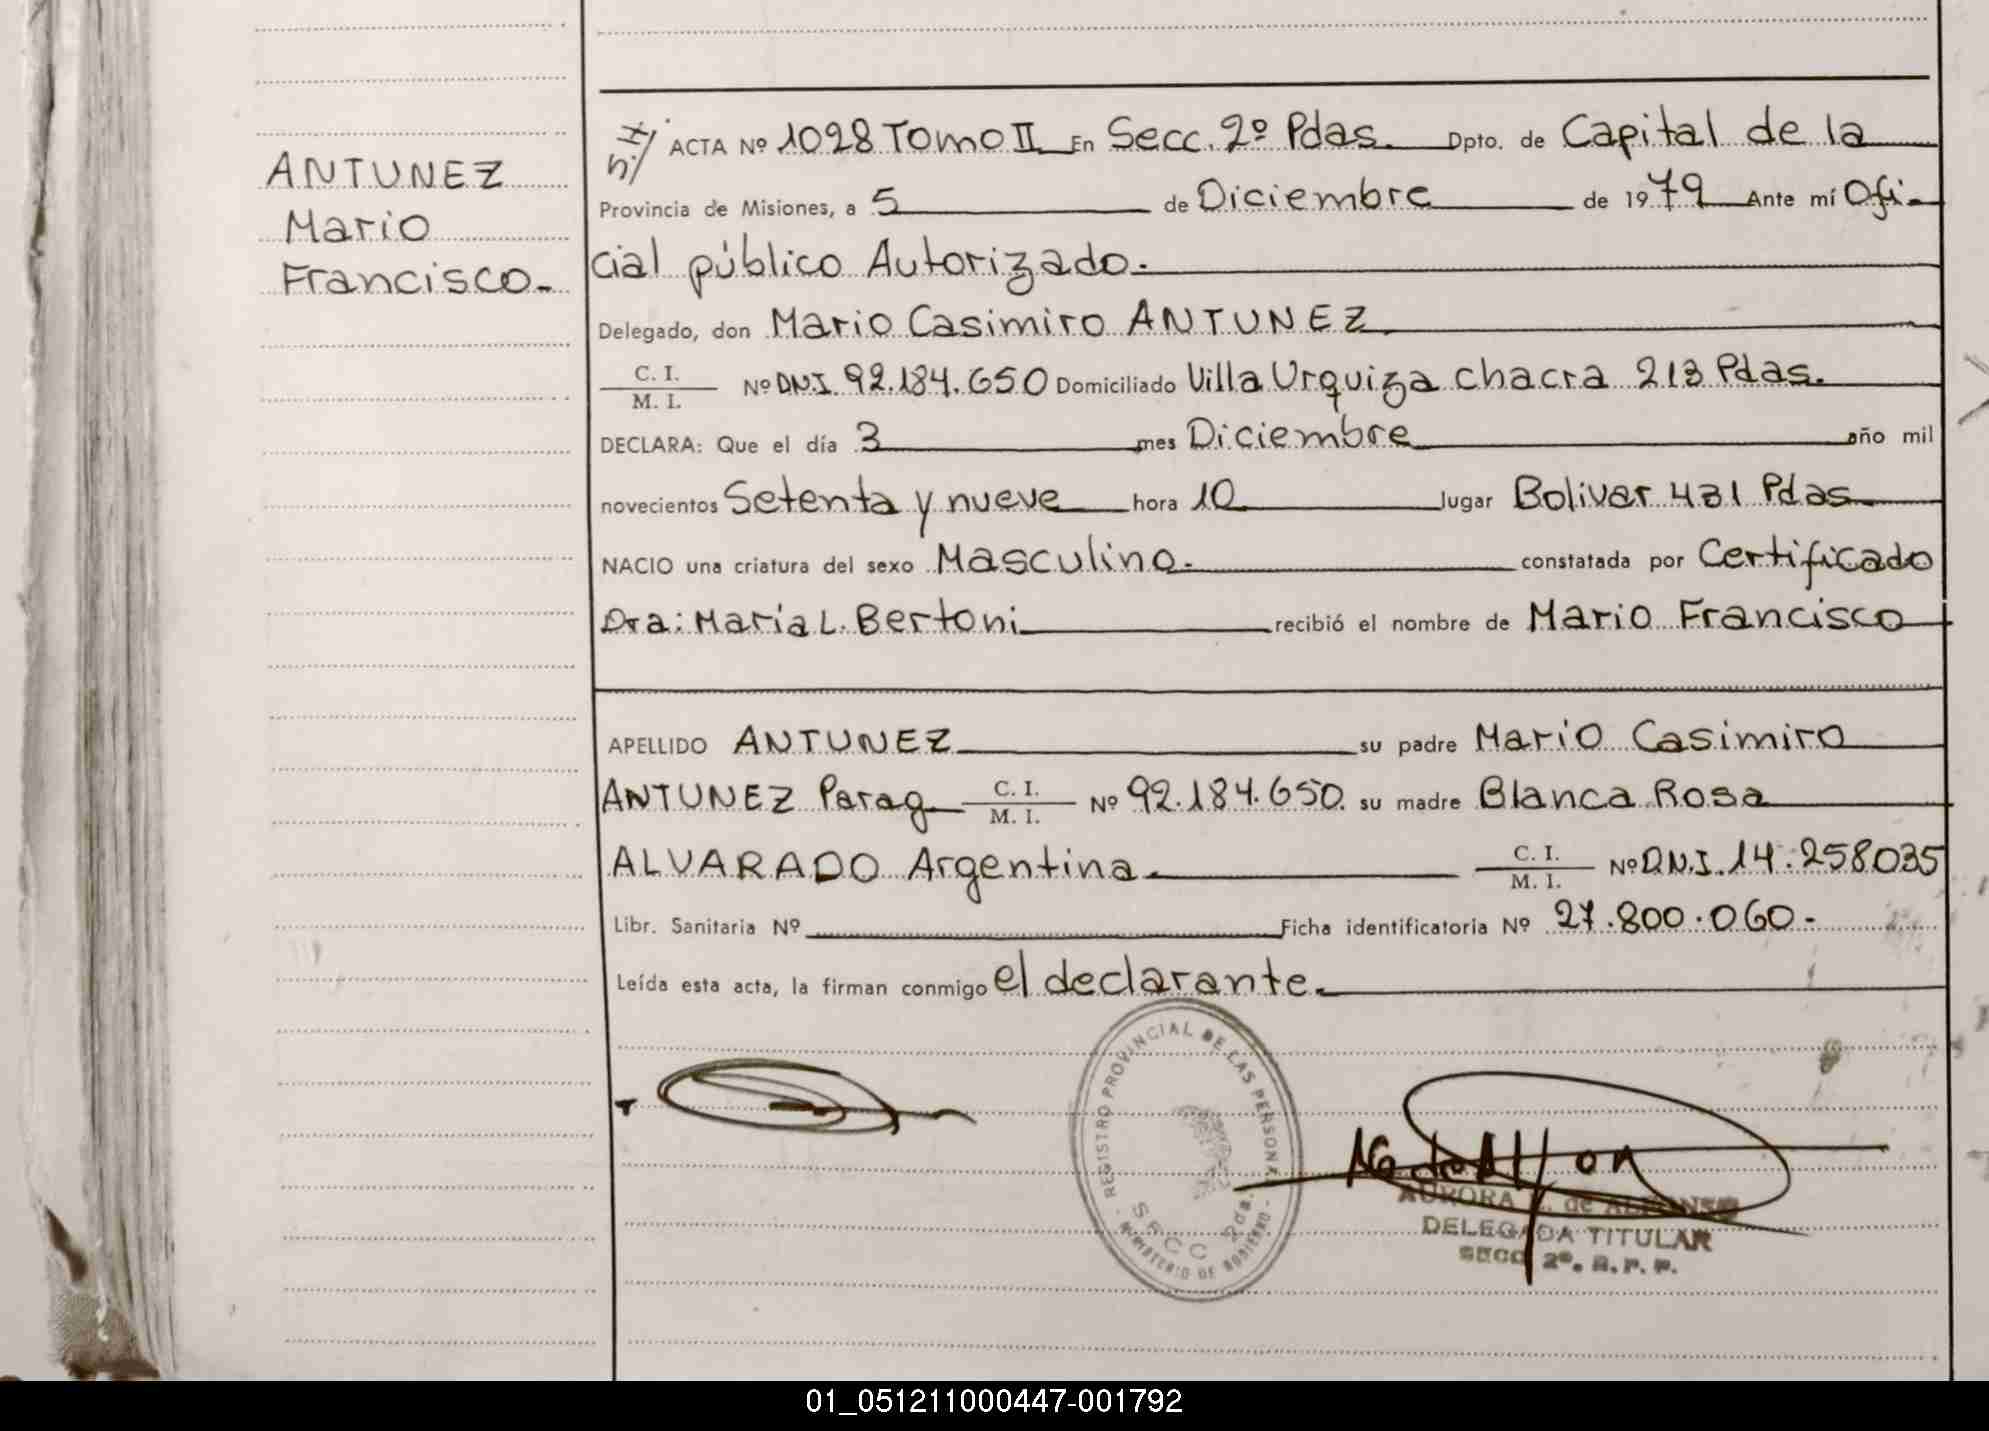 ANTUNEZ
Mario
Francisco.
ACTA Nº 1028 Tomo II En Secc. 2º Pdas. Dpto. de Capital de la
Provincia de Misiones, a 5 de Diciembre de 1979 Ante mí Ofi-
cial público Autorizado.
Delegado, don Mario Casimiro ANTUNEZ
C. I.
M. I.
Nº D.N.I. 92.184.650 Domiciliado Villa Urquiza chacra 213 Pdas.
DECLARA: Que el día 3 mes Diciembre año mil
novecientos Setenta y nueve hora 10 lugar Bolivar 431 Pdas
NACIO una criatura del sexo Masculino. constatada por Certificado
Dra: María L. Bertoni recibió el nombre de Mario Francisco
APELLIDO ANTUNEZ su padre Mario Casimiro
ANTUNEZ Parag C. I. M. I. Nº 92.184.650. su madre Blanca Rosa
ALVARADO Argentina. C. I. M. I. Nº D.N.I. 14.258035
Libr. Sanitaria Nº Ficha identificatoria Nº 27.800.060-
Leída esta acta, la firman conmigo el declarante.
REGISTRO PROVINCIAL DE LAS PERSONAS
SECC 2da.
MINISTERIO DE GOBIERNO
AURORA de ALFONSO
DELEGADA TITULAR
SECC 2º. R. P. P.
01_051211000447-001792